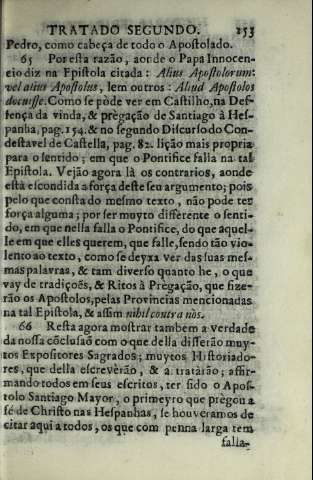 TRATADO SEGUNDO. 153
Pedro, como cabeça de todo o Apostolado.
65 Por esta razão, aonde o Papa Innocen-
cio diz na Epistola citada: Alius Apostolorum:
vel alius Apostolus, lem outros: Aliud Apostolos
docuisse. Como se pòde ver em Castilho, na Def-
fença da vinda, & prègação de Santiago à Hes-
panha, pag. 154. & no segundo Discurso do Con-
destavel de Castella, pag. 82. lição mais propria
para o sentido; em que o Pontifice falla na tal
Epistola. Vejão agora là os contrarios, aonde
està escondida a força deste seu argumento; pois
pelo que consta do mesmo texto, não pode ter
força alguma; por ser muyto differente o senti-
do, em que nella falla o Pontifice, do que aquel-
le em que elles querem, que falle, sendo tão vio-
lento ao texto, como se deyxa ver das suas mes-
mas palavras, & tam diverso quanto he, o que
vay de tradiçoẽs, & Ritos à Prègação, que fize-
rão os Apostolos, pelas Provincias mencionadas
na tal Epistola, & assim nihil contra nòs.
66 Resta agora mostrar tambem a verdade
da nossa cõclusaõ com o que della disserão muy-
tos Expositores Sagrados; muytos Historiado-
res, que della escrevèrão, & a tratàrão; affir-
mando todos em seus escritos, ter sido o Apos-
tolo Santiago Mayor, o primeyro que prègou a
fé de Christo nas Hespanhas, se houveramos de
citar aqui a todos, os que com penna larga tem
falla-